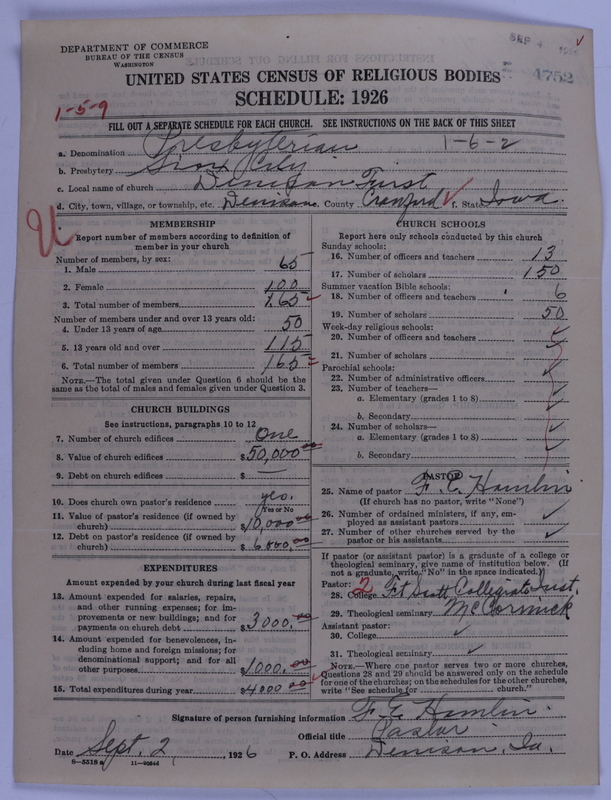 DEPARTMENT OF COMMERCE
BUREAU OF THE CENSUS
WASHINGTON
SEP 4
4752
UNITED STATES CENSUS OF RELIGIOUS BODIES
SCHEDULE: 1926
1-5-9
FILL OUT A SEPARATE SCHEDULE FOR EACH CHURCH. SEE INSTRUCTIONS ON THE BACK OF THIS SHEET
a. Denomination Presbyterian 1-6-2
b. Presbytery Sioux City
c. Local name of church Denison First
d. City, town, village, or township, etc. Denison e. County Crawford f. State Iowa.
U
MEMBERSHIP
Report number of members according to definition of
member in your church
Number of members, by sex:
1. Male 65
2. Female 100
3. Total number of members 165
Number of members under and over 13 years old:
4. Under 13 years of age 50
5. 13 years old and over 115
6. Total number of members 165
NOTE.—The total given under Question 6 should be the
same as the total of males and females given under Question 3.
CHURCH BUILDINGS
See instructions, paragraphs 10 to 12
7. Number of church edifices One
8. Value of church edifices $50,000.00
9. Debt on church edifices $ —
10. Does church own pastor's residence yes.
Yes or No
11. Value of pastor's residence (if owned by
church) $10,000.00
12. Debt on pastor's residence (if owned by
church) $6,800.00
EXPENDITURES
Amount expended by your church during last fiscal year
13. Amount expended for salaries, repairs,
and other running expenses; for im-
provements or new buildings; and for
payments on church debt $3000.00
14. Amount expended for benevolences, in-
cluding home and foreign missions; for
denominational support; and for all
other purposes $1000.00
15. Total expenditures during year $4000.00
CHURCH SCHOOLS
Report here only schools conducted by this church
Sunday schools:
16. Number of officers and teachers 13
17. Number of scholars 150
Summer vacation Bible schools:
18. Number of officers and teachers 6
19. Number of scholars 50
Week-day religious schools:
20. Number of officers and teachers
21. Number of scholars
Parochial schools:
22. Number of administrative officers
23. Number of teachers—
a. Elementary (grades 1 to 8)
b. Secondary
24. Number of scholars—
a. Elementary (grades 1 to 8)
b. Secondary
PASTOR
25. Name of pastor F. E. Hamlin
(If church has no pastor, write "None")
26. Number of ordained ministers, if any, em-
ployed as assistant pastors
27. Number of other churches served by the
pastor or his assistants
If pastor (or assistant pastor) is a graduate of a college or
theological seminary, give name of institution below. (If
not a graduate, write "No" in the space indicated.)
Pastor: 2
28. College Ft Scott Collegiate Inst.
29. Theological seminary McCormick
Assistant pastor:
30. College
31. Theological seminary
NOTE.—Where one pastor serves two or more churches,
Questions 28 and 29 should be answered only on the schedule
for one of the churches; on the schedules for the other churches,
write "See schedule for church."
Signature of person furnishing information F. E. Hamlin.
Official title Pastor
Date Sept. 2, 1926 P. O. Address Denison, Ia.